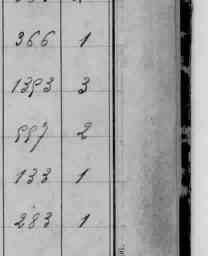 366 1
1393 3
997 2
133 1
283 1